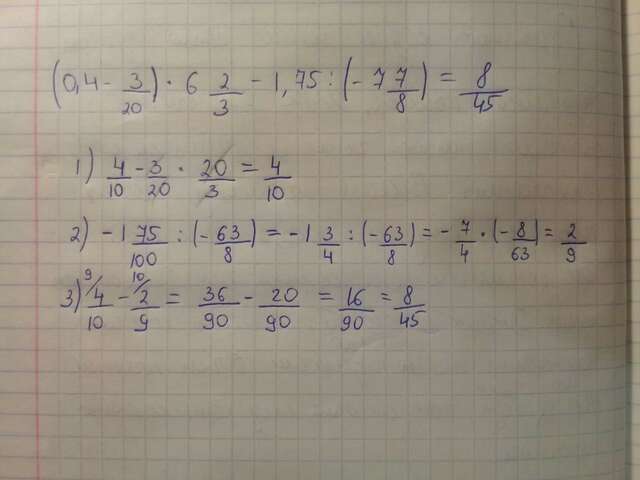 (0,4 - 3/20) · 6 2/3 - 1,75 : (-7 7/8) = 8/45
1) 4/10 - 3/20 · 20/3 = 4/10
2) -1 75/100 : (-63/8) = -1 3/4 : (-63/8) = -7/4 · (-8/63) = 2/9
3) 9/ 4/10 - 10/ 2/9 = 36/90 - 20/90 = 16/90 = 8/45